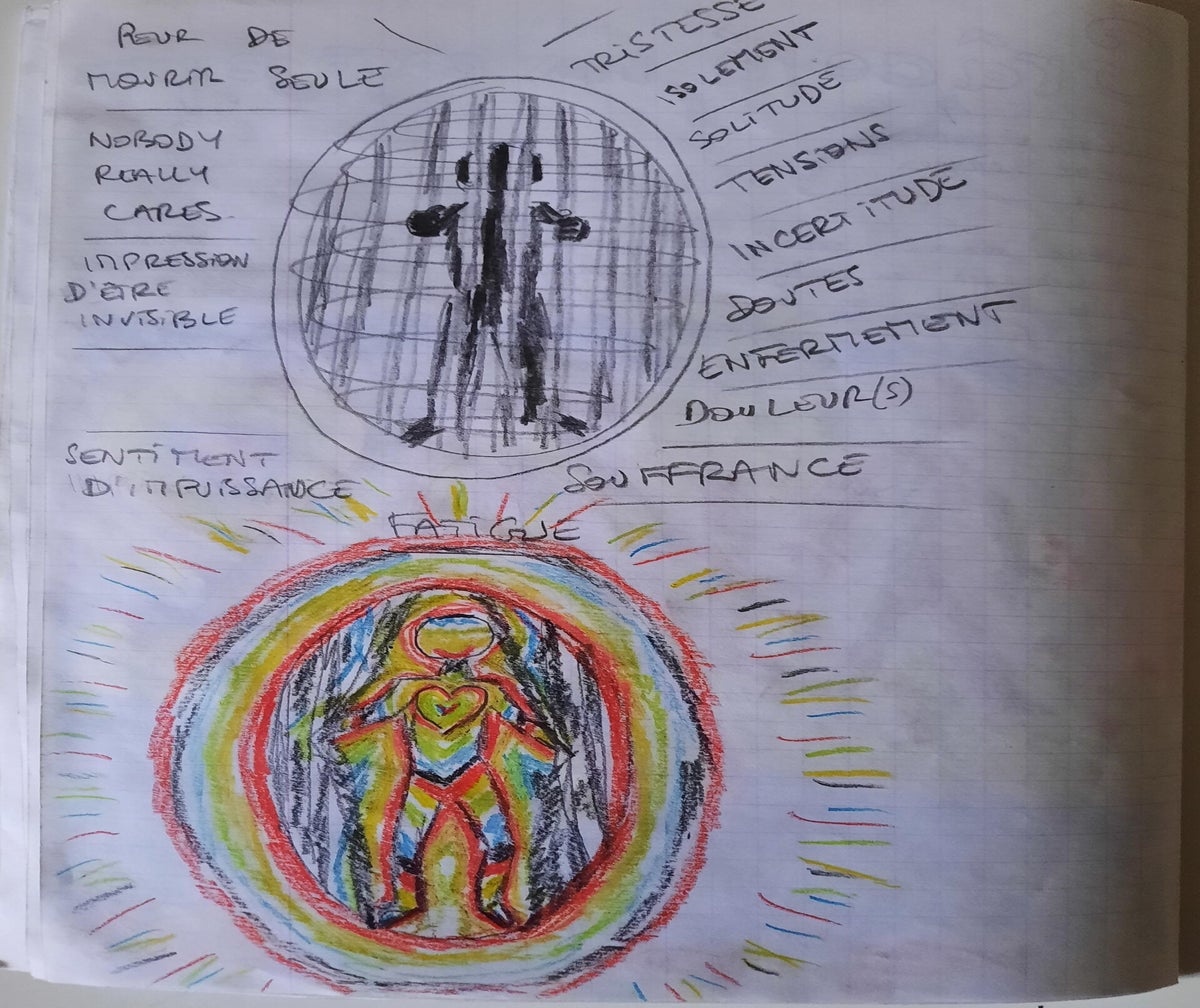 PEUR DE
MOURIR SEULE
NOBODY
REALLY
CARES
IMPRESSION
D'ÊTRE
INVISIBLE
SENTIMENT
D'IMPUISSANCE
TRISTESSE
ISOLEMENT
SOLITUDE
TENSIONS
INCERTITUDE
DOUTES
ENFERMEMENT
DOULEUR(S)
SOUFFRANCE
FATIGUE